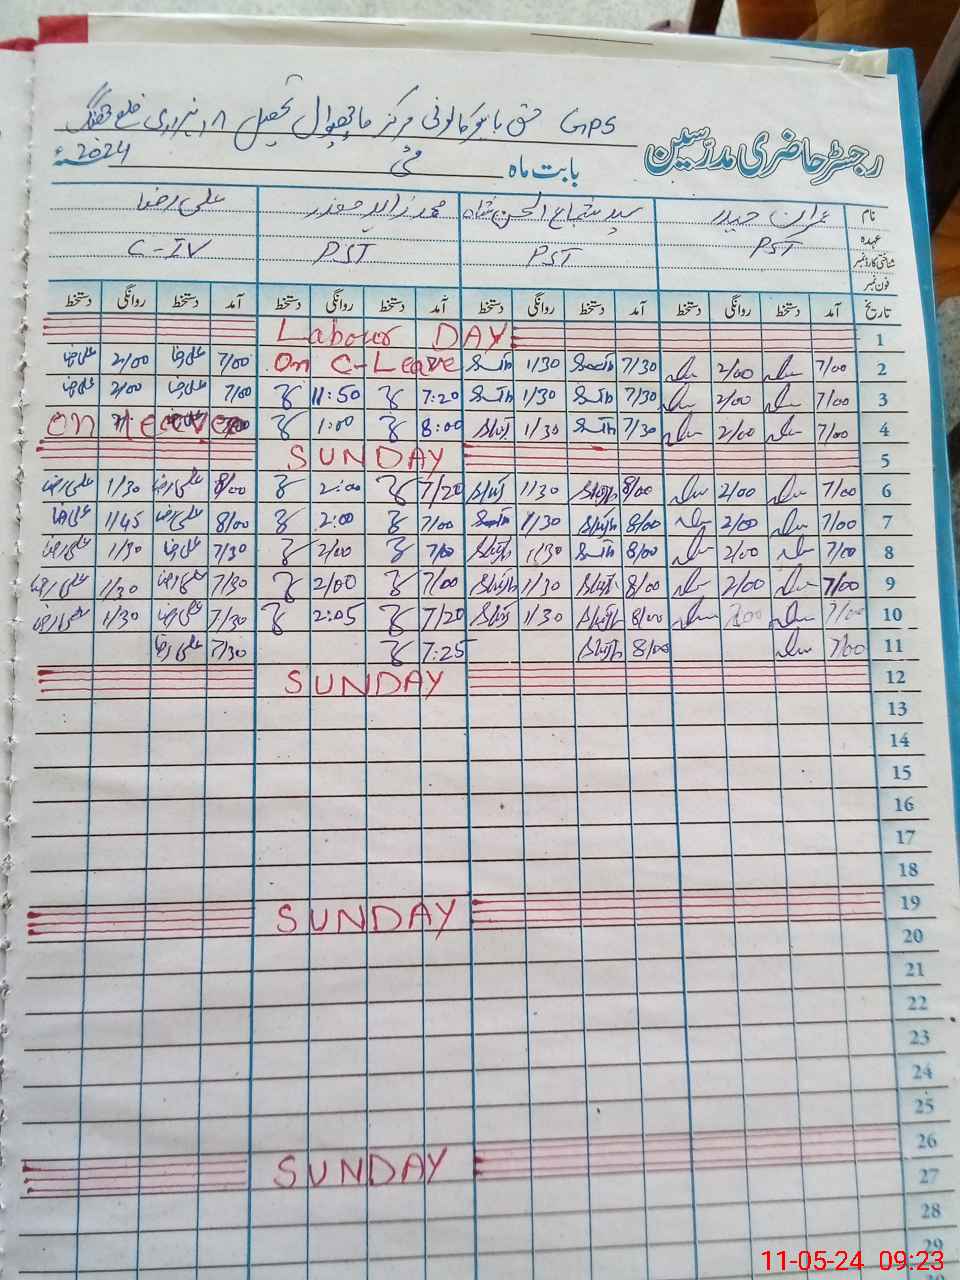 GPS حق باہو کالونی مرکز ماچھیوال تحصیل ۱۸ ہزاری ضلع جھنگ
رجسٹر حاضری مدرّسین
بابت ماہ مئی 2024ء
نام عمران حیدر سید شجاع الحسن شاہ محمد زاہد جعفر علی رضا
عہدہ PST PST PST C-IV
شناختی کارڈ نمبر
فون نمبر
تاریخ آمد دستخط روانگی دستخط آمد دستخط روانگی دستخط آمد دستخط روانگی دستخط آمد دستخط روانگی دستخط
1 Labour DAY
2 7/00 2/00 7/30 1/30 On C-Leave 7/00 علی رضا 2/00 علی رضا
3 7/00 2/00 7/30 1/30 7:20 11:50 7/00 علی رضا 2/00 علی رضا
4 7/00 2/00 7/30 1/30 8:00 1:00 on leave
5 SUNDAY
6 7/00 2/00 8/00 1/30 7/20 2:00 8/00 علی رضا 1/30 علی رضا
7 7/00 2/00 8/00 1/30 7/00 2:00 8/00 علی رضا 1/45 علی رضا
8 7/00 2/00 8/00 1/30 7/00 2/00 7/30 علی رضا 1/30 علی رضا
9 7/00 2/00 8/00 1/30 7/00 2/00 7/30 علی رضا 1/30 علی رضا
10 7/00 8/00 1/30 7/20 2:05 7/30 علی رضا 1/30 علی رضا
11 7/00 8/00 7:25 7/30 علی رضا
12 SUNDAY
13
14
15
16
17
18
19 SUNDAY
20
21
22
23
24
25
26 SUNDAY
27
28
29
11-05-24 09:23